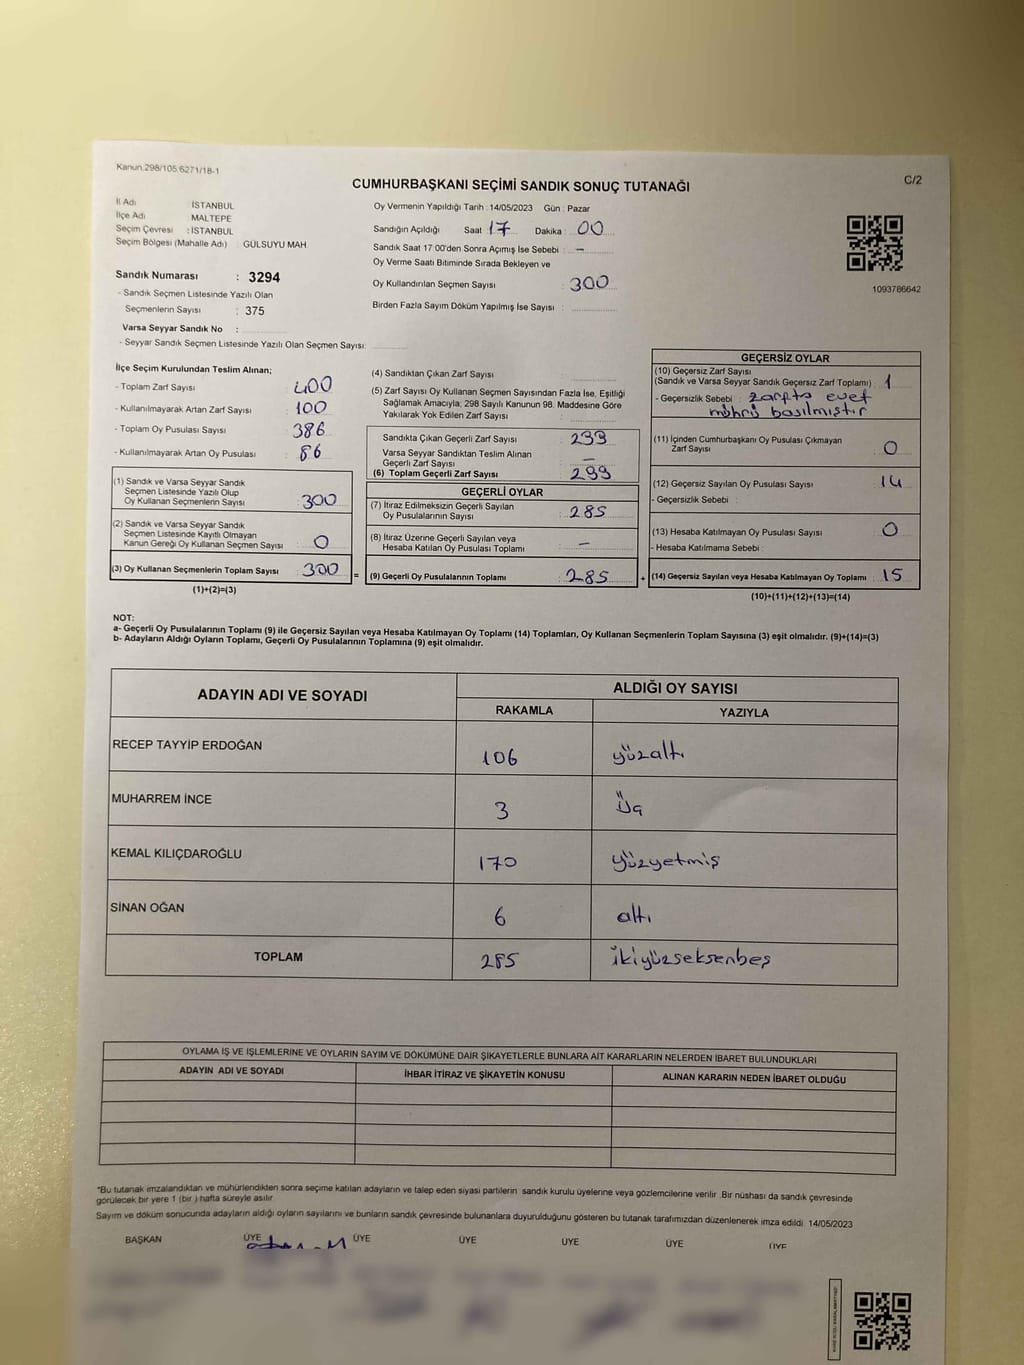 Kanun.298/105.6271/18-1
C/2
CUMHURBAŞKANI SEÇİMİ SANDIK SONUÇ TUTANAĞI
İl Adı : İSTANBUL
İlçe Adı : MALTEPE
Seçim Çevresi : İSTANBUL
Seçim Bölgesi (Mahalle Adı) : GÜLSUYU MAH.
Sandık Numarası : 3294
- Sandık Seçmen Listesinde Yazılı Olan
Seçmenlerin Sayısı : 375
Varsa Seyyar Sandık No :
- Seyyar Sandık Seçmen Listesinde Yazılı Olan Seçmen Sayısı:
Oy Vermenin Yapıldığı Tarih : 14/05/2023 Gün : Pazar
Sandığın Açıldığı Saat 17 Dakika : 00
Sandık Saat 17:00'den Sonra Açımış İse Sebebi : -
Oy Verme Saati Bitiminde Sırada Bekleyen ve
Oy Kullandırılan Seçmen Sayısı : 300
Birden Fazla Sayım Döküm Yapılmış İse Sayısı :
1093786642
İlçe Seçim Kurulundan Teslim Alınan;
- Toplam Zarf Sayısı : 400
- Kullanılmayarak Artan Zarf Sayısı : 100
- Toplam Oy Pusulası Sayısı : 386
- Kullanılmayarak Artan Oy Pusulası : 86
(1) Sandık ve Varsa Seyyar Sandık
Seçmen Listesinde Yazılı Olup
Oy Kullanan Seçmenlerin Sayısı : 300
(2) Sandık ve Varsa Seyyar Sandık
Seçmen Listesinde Kayıtlı Olmayan
Kanun Gereği Oy Kullanan Seçmen Sayısı : 0
(3) Oy Kullanan Seçmenlerin Toplam Sayısı : 300
(1)+(2)=(3)
(4) Sandıktan Çıkan Zarf Sayısı :
(5) Zarf Sayısı Oy Kullanan Seçmen Sayısından Fazla İse, Eşitliği
Sağlamak Amacıyla, 298 Sayılı Kanunun 98. Maddesine Göre
Yakılarak Yok Edilen Zarf Sayısı :
Sandıkta Çıkan Geçerli Zarf Sayısı : 299
Varsa Seyyar Sandıktan Teslim Alınan
Geçerli Zarf Sayısı : -
(6) Toplam Geçerli Zarf Sayısı : 299
GEÇERLİ OYLAR
(7) İtiraz Edilmeksizin Geçerli Sayılan
Oy Pusulalarının Sayısı : 285
(8) İtiraz Üzerine Geçerli Sayılan veya
Hesaba Katılan Oy Pusulası Toplamı : -
= (9) Geçerli Oy Pusulalarının Toplamı : 285 +
GEÇERSİZ OYLAR
(10) Geçersiz Zarf Sayısı
(Sandık ve Varsa Seyyar Sandık Geçersiz Zarf Toplamı) : 1
- Geçersizlik Sebebi : zarfta evet
mührü basılmıştır
(11) İçinden Cumhurbaşkanı Oy Pusulası Çıkmayan
Zarf Sayısı : 0
(12) Geçersiz Sayılan Oy Pusulası Sayısı : 14
- Geçersizlik Sebebi :
(13) Hesaba Katılmayan Oy Pusulası Sayısı : 0
- Hesaba Katılmama Sebebi :
(14) Geçersiz Sayılan veya Hesaba Katılmayan Oy Toplamı : 15
(10)+(11)+(12)+(13)=(14)
NOT:
a- Geçerli Oy Pusulalarının Toplamı (9) ile Geçersiz Sayılan veya Hesaba Katılmayan Oy Toplamı (14) Toplamları, Oy Kullanan Seçmenlerin Toplam Sayısına (3) eşit olmalıdır. (9)+(14)=(3)
b- Adayların Aldığı Oyların Toplamı, Geçerli Oy Pusulalarının Toplamına (9) eşit olmalıdır.
ADAYIN ADI VE SOYADI
ALDIĞI OY SAYISI
RAKAMLA YAZIYLA
RECEP TAYYİP ERDOĞAN 106 yüzaltı
MUHARREM İNCE 3 Üç
KEMAL KILIÇDAROĞLU 170 yüzyetmiş
SİNAN OĞAN 6 altı
TOPLAM 285 ikiyüzseksenbeş
OYLAMA İŞ VE İŞLEMLERİNE VE OYLARIN SAYIM VE DÖKÜMÜNE DAİR ŞİKAYETLERLE BUNLARA AİT KARARLARIN NELERDEN İBARET BULUNDUKLARI
ADAYIN ADI VE SOYADI İHBAR İTİRAZ VE ŞİKAYETİN KONUSU ALINAN KARARIN NEDEN İBARET OLDUĞU
*Bu tutanak imzalandıktan ve mühürlendikten sonra seçime katılan adayların ve talep eden siyasi partilerin sandık kurulu üyelerine veya gözlemcilerine verilir .Bir nüshası da sandık çevresinde
görülecek bir yere 1 (bir ) hafta süreyle asılır.
Sayım ve döküm sonucunda adayların aldığı oyların sayılarını ve bunların sandık çevresinde bulunanlara duyurulduğunu gösteren bu tutanak tarafımızdan düzenlenerek imza edildi. 14/05/2023
BAŞKAN ÜYE ÜYE ÜYE ÜYE ÜYE ÜYE